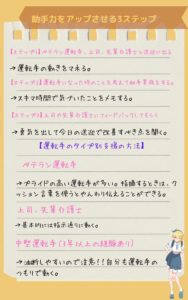 助手力をアップさせる3ステップ
【ステップ1】ベテラン運転手、上司、先輩介護士と送迎に出る
→運転手の動きをマネる。
【ステップ2】運転手になった時のことを考えて助手業務をする。
→スキマ時間で気づいたことをメモする。
【ステップ3】上司や先輩介護士にフィードバックしてもらう
→勇気を出して今日の送迎で改善すべき点を聞く。
【運転手のタイプ別名傷の方法】
ベテラン運転手
→プライドの高い運転手が多い。指摘するときは、クッション言葉を使うとやんわり伝えることができる。
上司、先輩介護士
→基本的には指示通りに動く。
中堅運転手(3年以上の経験あり)
→油断しやすいので注意!!自分も運転手のつもりで動く。